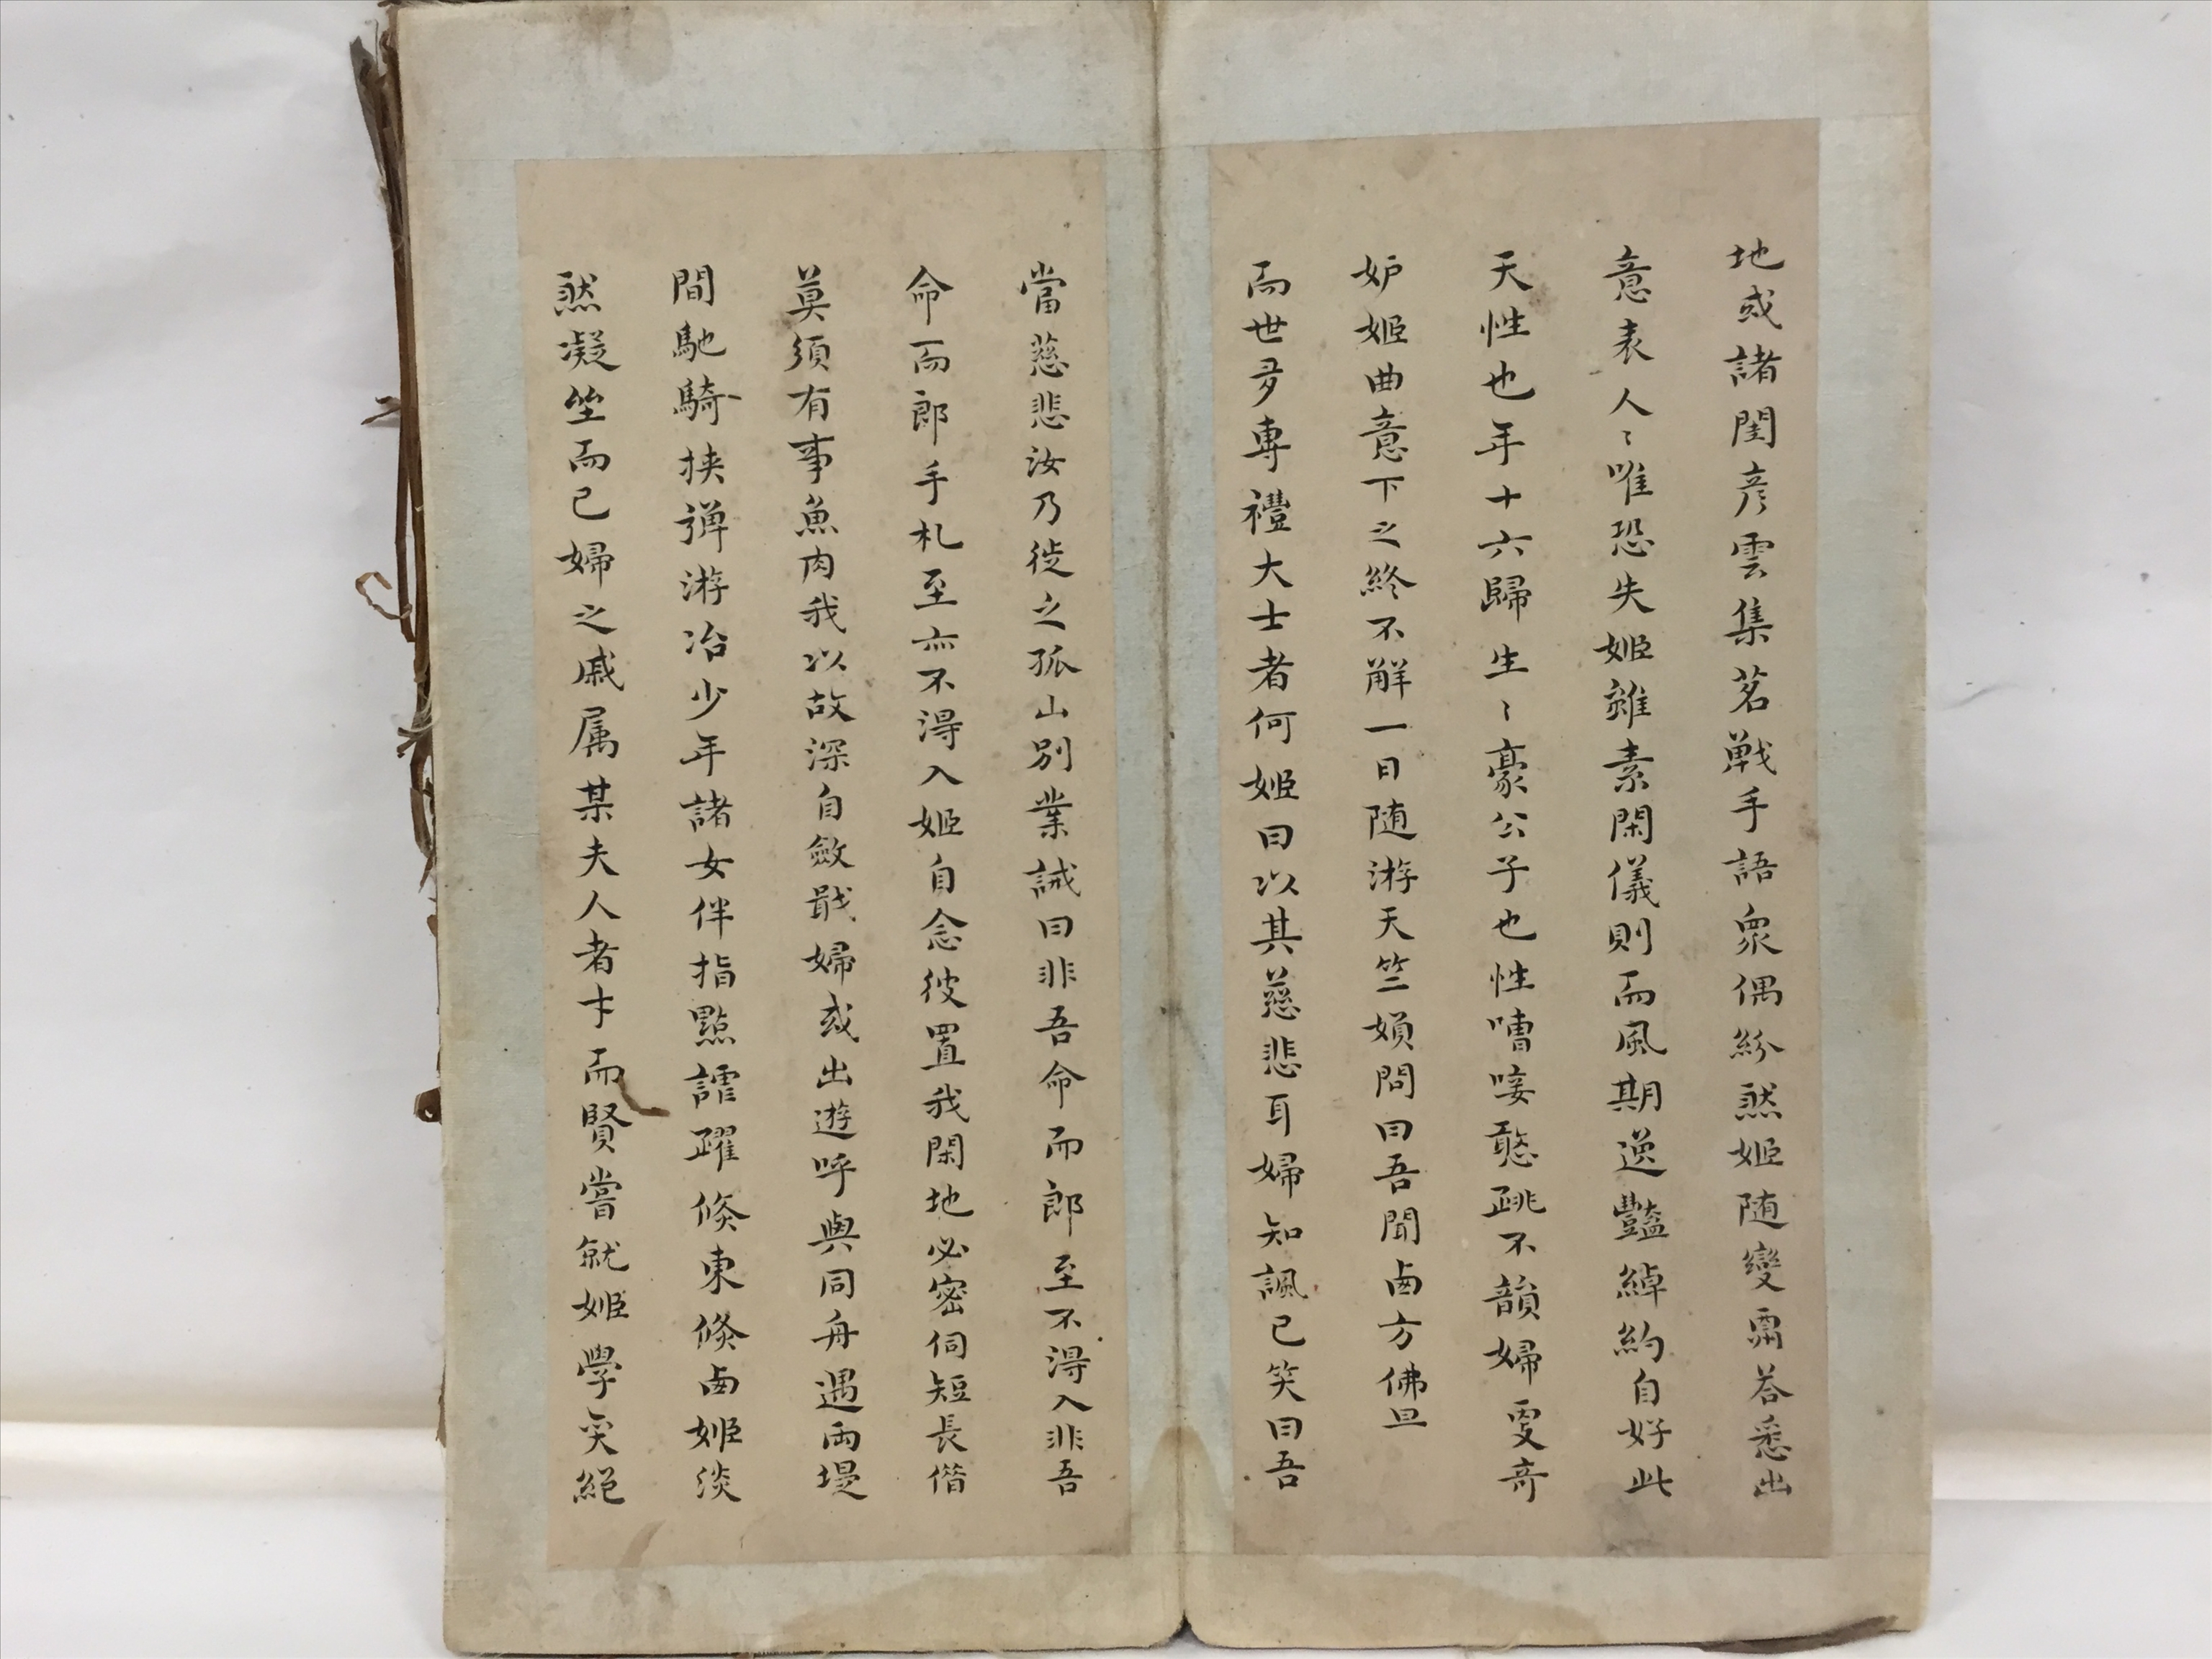 地或諸閨彥雲集茗戰手語眾偶紛然姬随變酬荅悉出
意表人〻唯恐失姬雖素閑儀則而風期逸豔綽約自好此
天性也年十六歸生〻豪公子也性嘈唼憨跳不韻婦更奇
妒姬曲意下之終不解一日随游天竺婦問曰吾聞西方佛且
而世多專禮大士者何姬曰以其慈悲耳婦知諷己笑曰吾
當慈悲汝乃徙之孤山別業誡曰非吾命而郎至不得入非吾
命而郎手札至亦不得入姬自念彼置我閑地必密伺短長借
莫須有事魚肉我以故深自斂戢婦或出遊呼與同舟遇兩堤
間馳騎挾弹游冶少年諸女伴指點謔躍倏東倏西姬淡
然凝坐而已婦之戚属某夫人者才而賢嘗就姬學奕絕